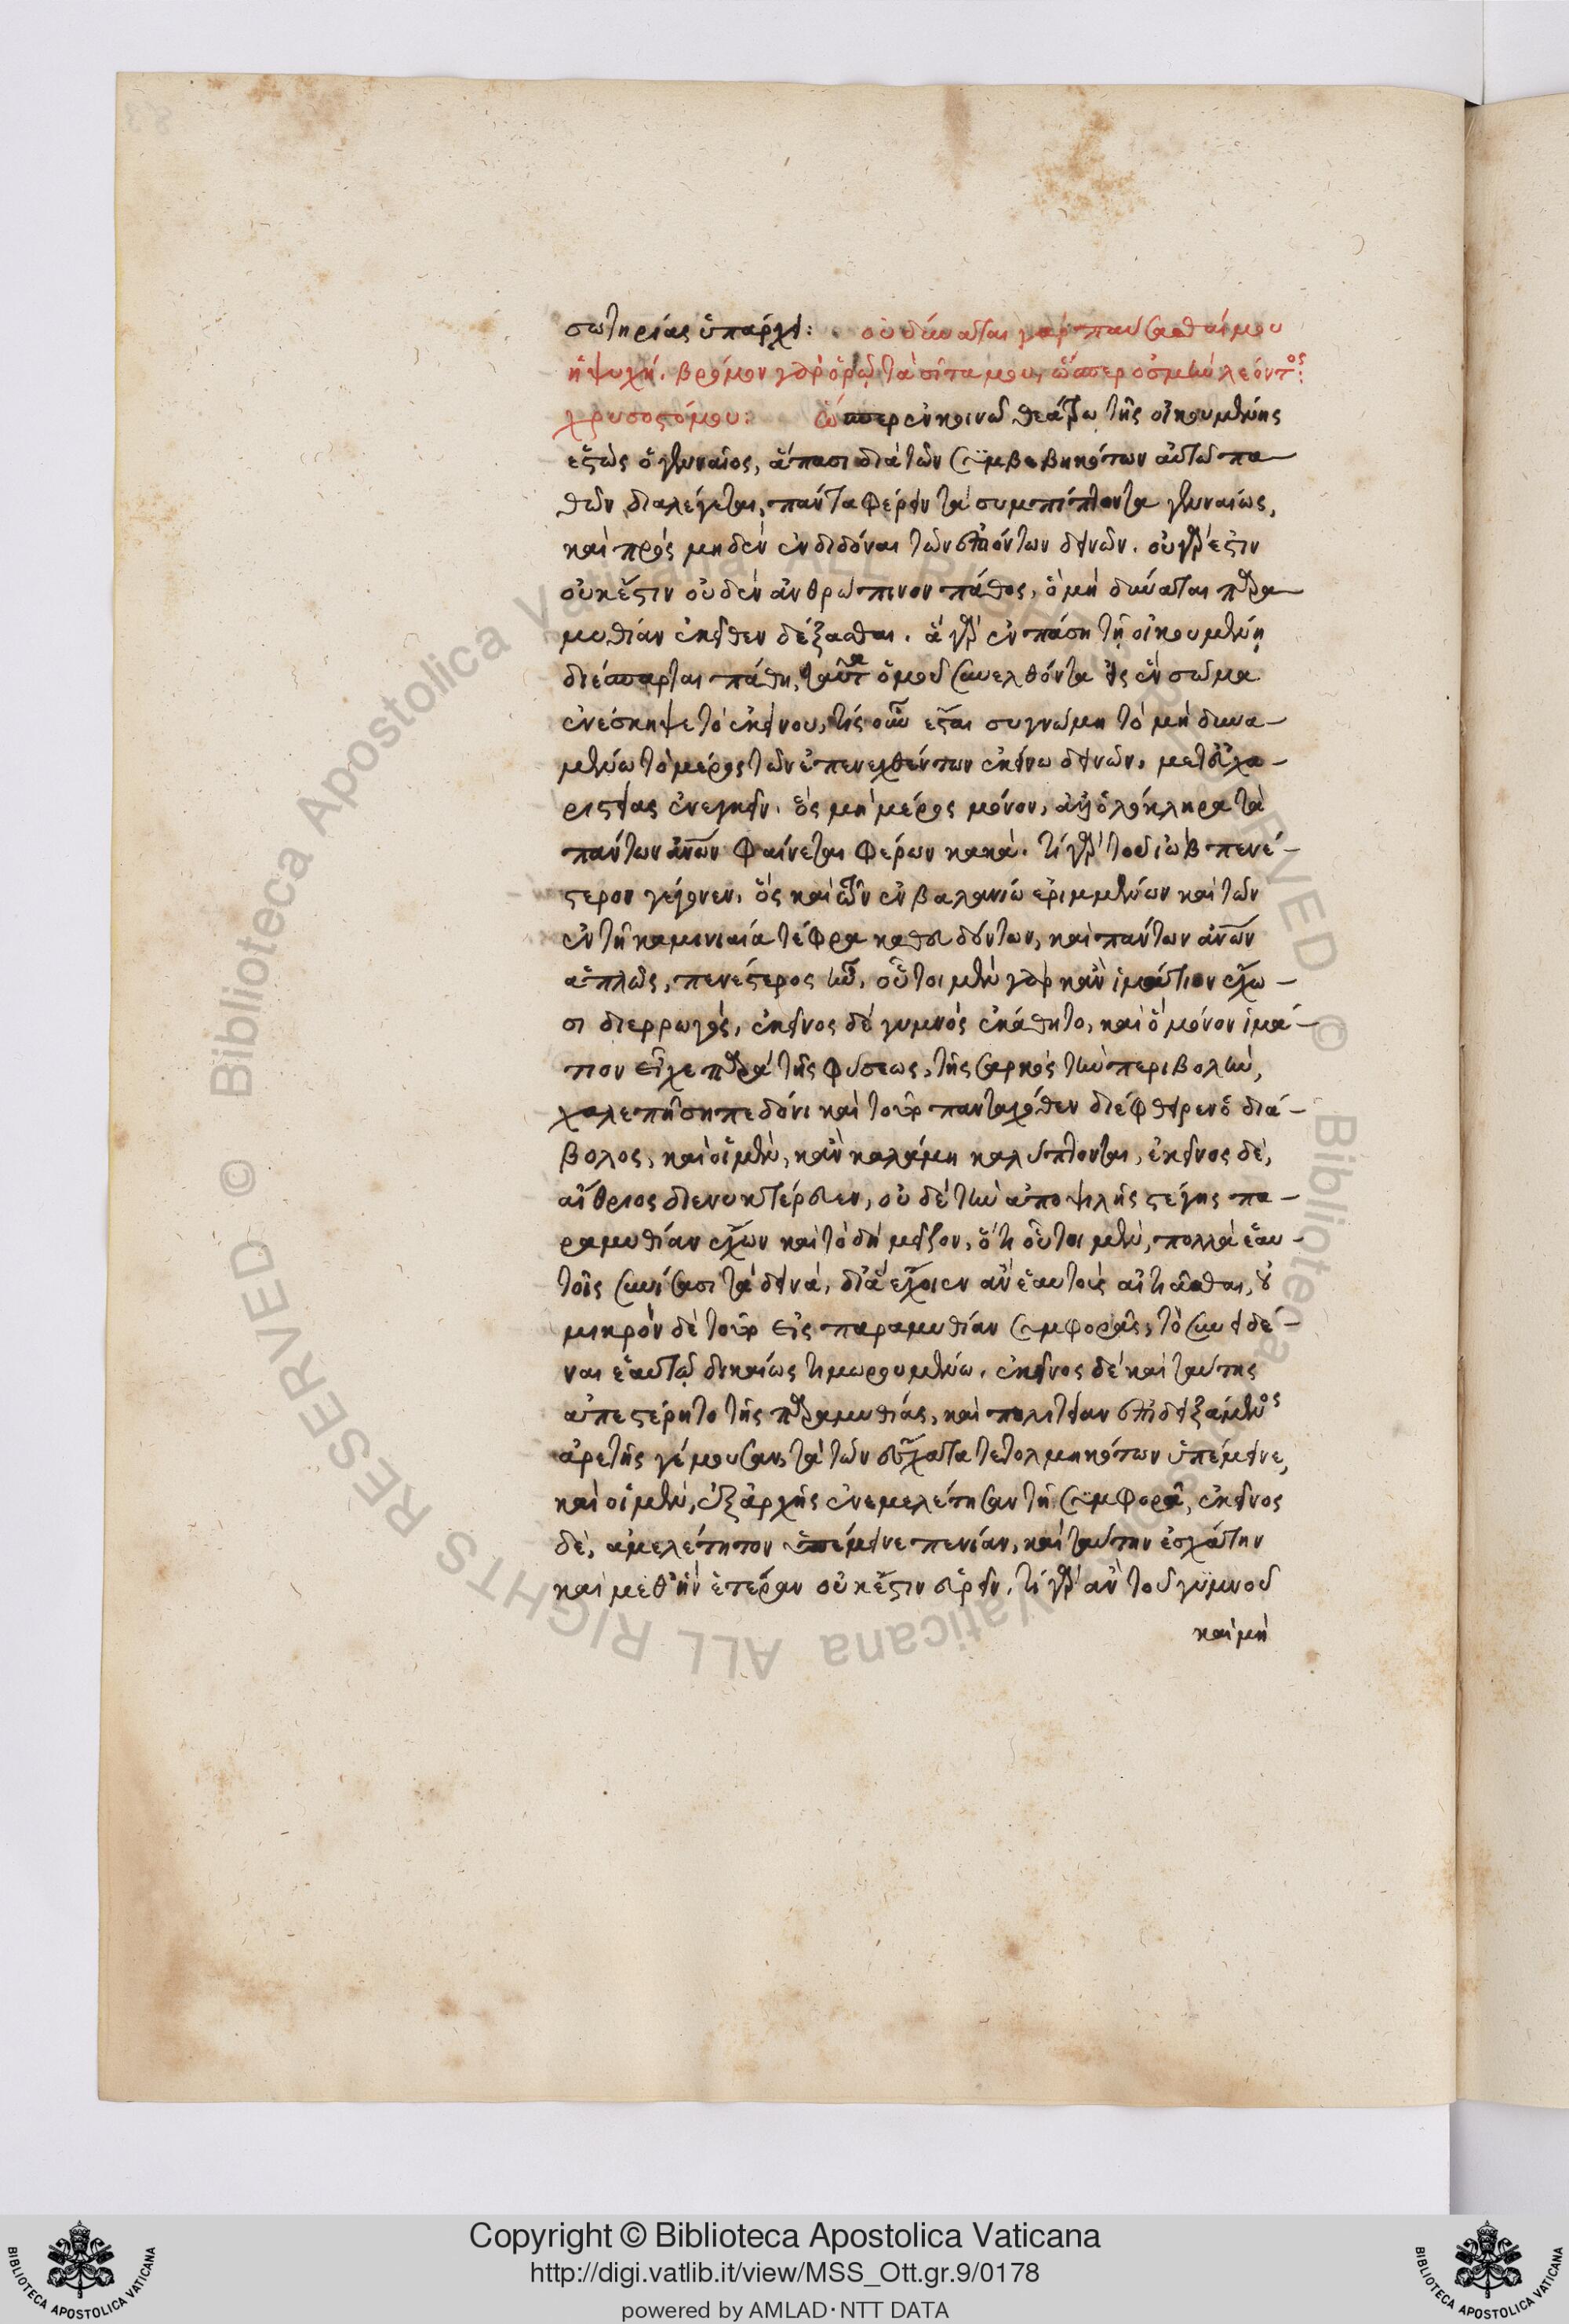 σωτηρίας ὑπάρχει: οὐ δύναται γὰρ παύσασθαί μου
ἡ ψυχή. βρόμον γὰρ ὁρῶ τὰ σῖτα μου, ὥσπερ ὀσμὴν λέοντος:
χρυσοστόμου: ὥσπερ ἐν κοινῷ θεάτρω τῆς οἰκουμένης
ἑστὼς ὁ γενναῖος, ἅπασι διὰ τῶν συμβεβηκότων αὐτῷ πα
θῶν διαλέγεται, πάντα φέρειν τὰ συμπίπτοντα γενναίως,
καὶ πρὸς μηδὲν ἐνδιδόναι τῶν ἐπιόντων δεινῶν. οὐ γὰρ ἔστιν
οὐκ ἔστιν οὐδὲν ἀνθρώπινον πάθος, ὃ μὴ δύναται παρα
μυθίαν ἐκεῖθεν δέξασθαι. ἃ γὰρ ἐν πάση τῇ οἰκουμένῃ
διέσπαρται πάθη, ταῦτα ὁμοῦ συνελθόντα εἰς ἓν σῶμα
ἐνέσκηψε τὸ ἐκείνου, τίς οὖν ἔσται συγνώμη τὸ μὴ δυνα-
μένω τὸ μέρος τῶν ἐπενεχθέντων ἐκείνω δεινῶν, μετ' εὐχα-
ριστίας ἐνεγκεῖν. ὃς μὴ μέρος μόνον, ἀλλ' ὁλόκληρα τὰ
πάντων ἀνων φαίνεται φέρων κακά. τί γὰρ τοῦ ἰὼβ πενέ-
στερον γέγονεν, ὃς καὶ τῶν ἐν βαλανίω ἐριμμένων καὶ τῶν
ἐν τῇ καμινιαία τέφρα καθευδόντων, καὶ πάντων ἀνων
ἁπλῶς, πενέστερος ἦν, οὗτοι μὲν γὰρ κἂν ἱμάτιον ἔχω-
σι διερρωγός, ἐκεῖνος δὲ γυμνὸς ἐκάθητο, καὶ ὃ μόνον ἱμά-
τιον εἶχε παρὰ τῆς φύσεως, τῆς σαρκὸς τὴν περιβολὴν,
χαλεπῇ σηπεδόνι καὶ τοῦτο πανταχόθεν διέφθειρεν ὁ διά-
βολος, καὶ οἱ μὲν, κἂν καλάμη καλύπτονται, ἐκεῖνος δὲ,
αἴθριος διενυκτέρευεν, οὐδὲ τὴν ἀπὸ ψιλῆς στέγης πα-
ραμυθίαν ἔχων καὶ τὸ δὴ μεῖζον, ὅτι οὗτοι μὲν, πολλὰ ἑαυ-
τοῖς συνίσασι τὰ δεινά, δι' ἃ ἔχοιεν ἂν ἑαυτοὺς αἰτιᾶσθαι, οὐ
μικρὸν δὲ τοῦτο εἰς παραμυθίαν συμφορᾶς, τὸ συνειδέ-
ναι ἑαυτῷ δικαίως τιμωρουμένω. ἐκεῖνος δὲ καὶ ταύτης
ἀπεστέρητο τῆς παραμυθίας, καὶ πολιτείαν ἐπιδειξάμενος
ἀρετῆς γέμουσαν, τὰ τῶν ἔσχατα τετολμηκότων ὑπέμεινε,
καὶ οἱ μὲν, ἐξ ἀρχῆς ἐνεμελέτησαν τῇ συμφορᾷ, ἐκεῖνος
δὲ, ἀμελέτητον ὑπέμεινε πενίαν, καὶ ταύτην ἐσχάτην
καὶ μεθ' ἣν ἑτέραν οὐκ ἔστιν εὑρεῖν. τί γὰρ ἂν τοῦ γυμνοῦ
καὶ μὴ
Copyright © Biblioteca Apostolica Vaticana
http://digi.vatlib.it/view/MSS_Ott.gr.9/0178
powered by AMLAD·NTT DATA